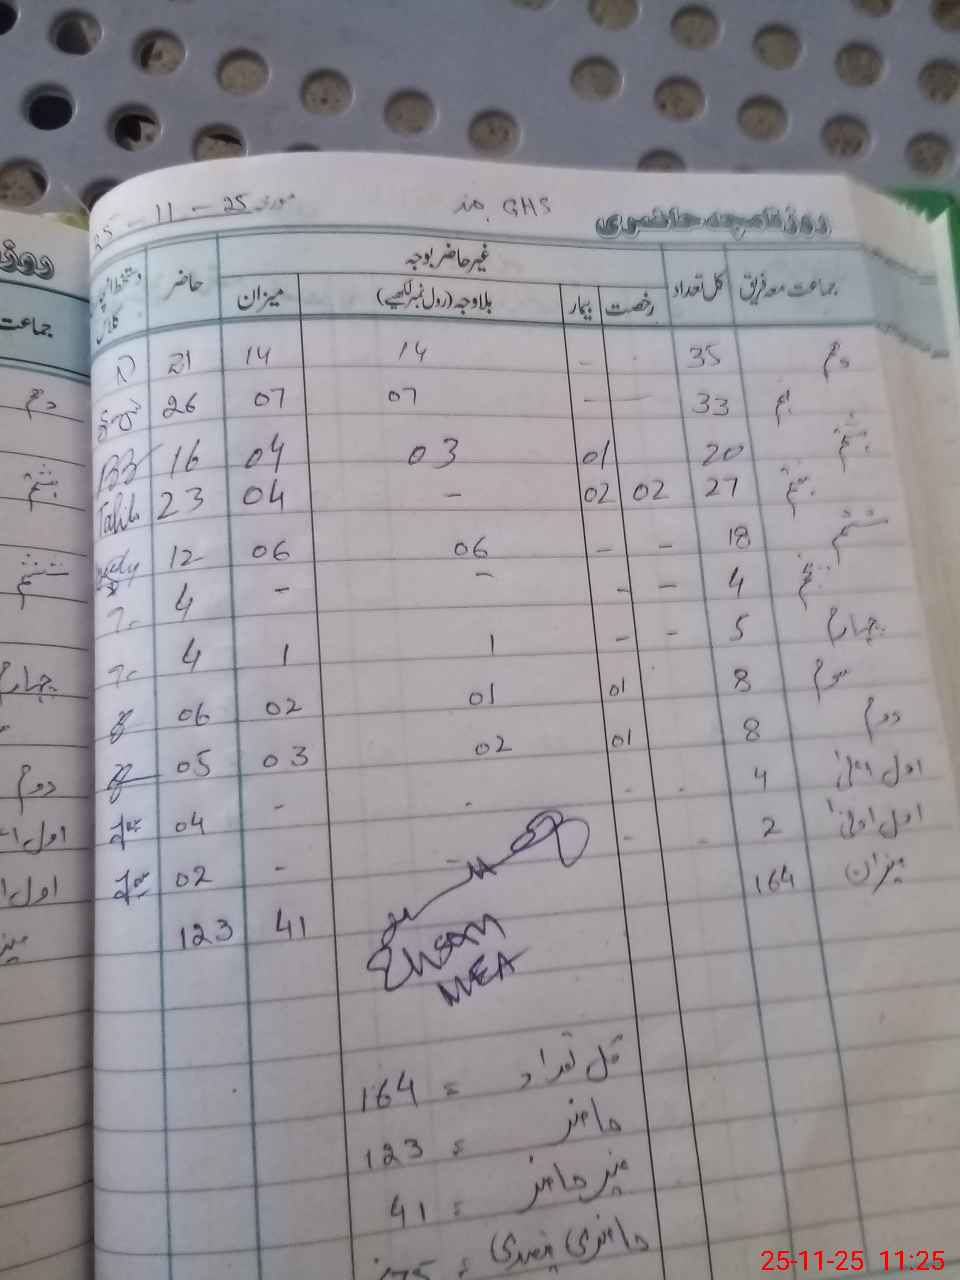 روزنامچہ حاضری GHS مورخہ 25 - 11 - 25
جماعت معہ فریق کل تعداد غیر حاضر بوجہ حاضر دستخط انچارج کلاس
رخصت بیمار بلاوجہ (رول نمبر لکھیے) میزان
دہم 35 - 14 14 21
نہم 33 - - 07 07 26
ہشتم 20 01 03 04 16 BB
ہفتم 27 02 02 - 04 23 Talib
ششم 18 - - 06 06 12
پنجم 4 - - - - 4
چہارم 5 - - 1 1 4
سوم 8 01 01 02 06
دوم 8 01 02 03 05
اول اعلیٰ 4 - - - - 04
اول ادنیٰ 2 - - - - 02
میزان 164 41 123
Ehsan
MEA
کل تعداد = 164
حاضر = 123
غیر حاضر = 41
حاضری فیصدی =
روز
جماعت
دہم
ہشتم
ششم
چہارم
دوم
اول
اول
میز
25-11-25 11:25